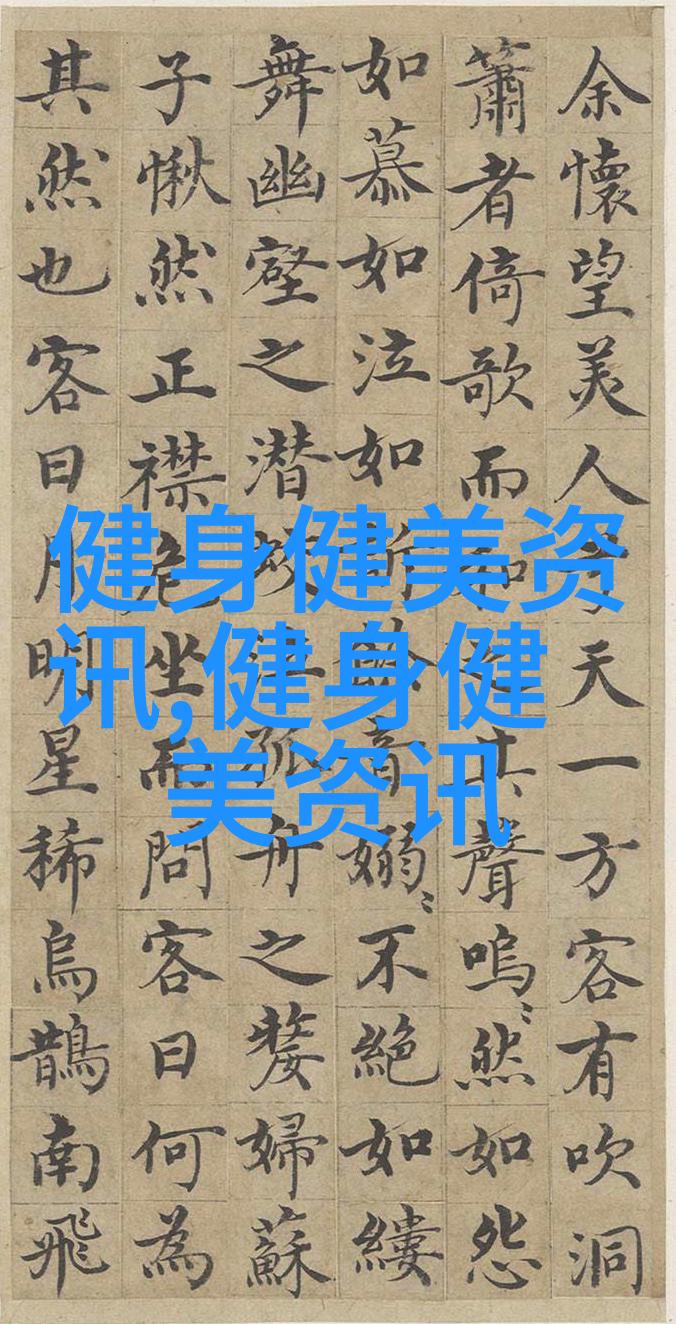 余懷望美人兮天一方客有吹洞
簫者倚歌而和之其聲嗚〻然如怨
如慕如泣如訴餘音嫋〻不絕如縷
舞幽壑之潛蛟泣孤舟之嫠婦蘇
子愀然正襟危坐而問客曰何為
其然也客曰月明星稀烏鵲南飛
健身健美资
讯,健身健
美资讯